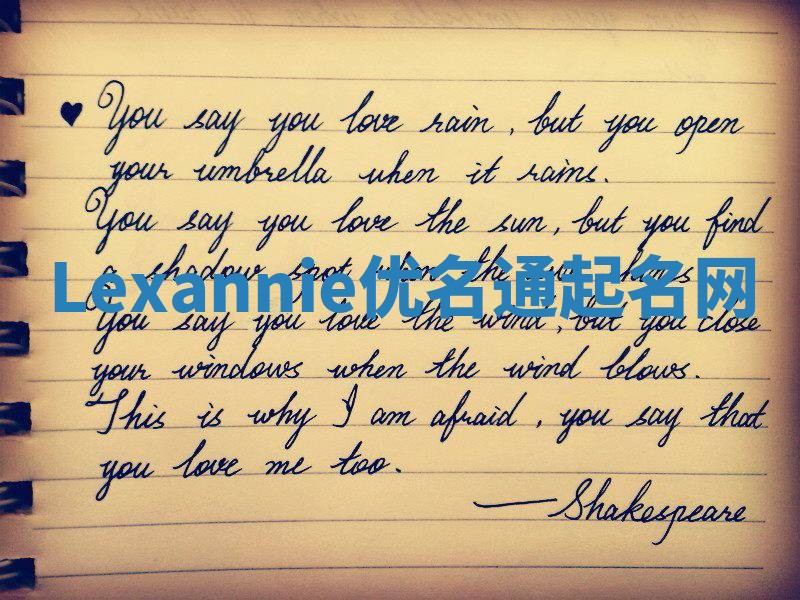 ♥ You say you love rain, but you open
your umbrella when it rains.
You say you love the sun, but you find
a shadow spot when the sun shines
Lexannie优名通起名网
You say you love the wind, but you close
your windows when the wind blows.
This is why I am afraid, you say that
you love me too.
—Shakespeare